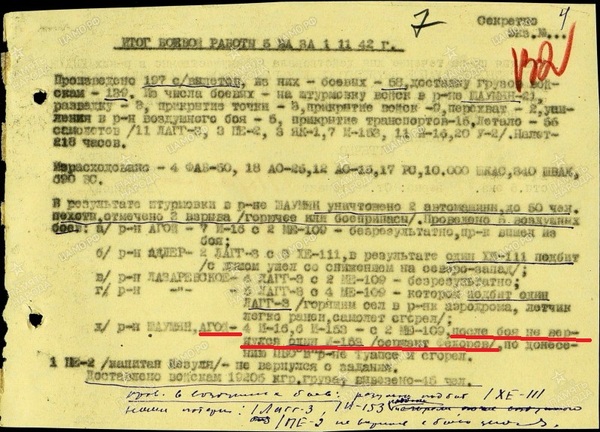 7
4
Секретно
Экз.№
ИТОГ БОЕВОЙ РАБОТЫ 5 ВА ЗА 1 11 42 г.
Произведено 197 с/вылетов, из них - боевых - 58, доставку грузов вой-
скам - 139. Из числа боевых - на штурмовку войск в р-не ШАУМЯН-21,
разведку - 8, прикрытие точки - 3, прикрытие войск - перехват - 2,
ления в р-н воздушного боя - 5, прикрытие транспортов-15. Летало - 56
самолетов /11 ЛАГГ-3, 3 ПЕ-2, 3 ЯК-1,7 И-153, 11 И-16,20 У-2/. Налет-
218 часов.
Израсходовано - 4 ФАБ-50, 18 АО-25,12 АО-15,17 РС, 10.000 ШКАС,340 ШВАК,
590 БС.
В результате штурмовки в р-не ШАУМЯН уничтожено 2 автомашины, до 50 чел.
пехоты, отмечено 2 взрыва /горючее или боеприпасы/. Проведено 5 воздушных
боев: а/ р-н АГОЙ - 7 И-16 с 2 МЕ-109 - безрезультатно, пр-к вышел из
боя;
б/ р-н АДЛЕР- 2 ЛАГГ-3 с 3 ХЕ-111, в результате один ХЕ-111 подбит
/с дымом ушел со снижением на северо-запад/;
в/ р-н ЛАЗАРЕВСКОЕ- 4 ЛАГГ-3 с 2 МЕ-109 - безрезультатно;
г/ р-н -"- ЛАГГ-3 с 4 МЕ-109 - котором подбит один
ЛАГГ-3 /горящим сел в р-не аэродрома, летчик
легко ранен, самолет сгорел/;
д/ р-н ШАУМЯН, АГОЙ- 4 И-16,6 И-153 - с 2 МЕ-109, после боя не вер-
нулся один И-153 /сержант Фекоров/, по донесе-
нию ПВО в р-не Туапсе и сгорел.
1 ПЕ-2 /капитан Изуля/- не вернулся с задания.
Доставлено войскам 19206 кгр. груза, вывезено-45 чел.
в воздушных боях: подбит 1 ХЕ-III
наши потери: 1 Лагг-3, 1 И-153
1 ПЕ-2 не вернулся с